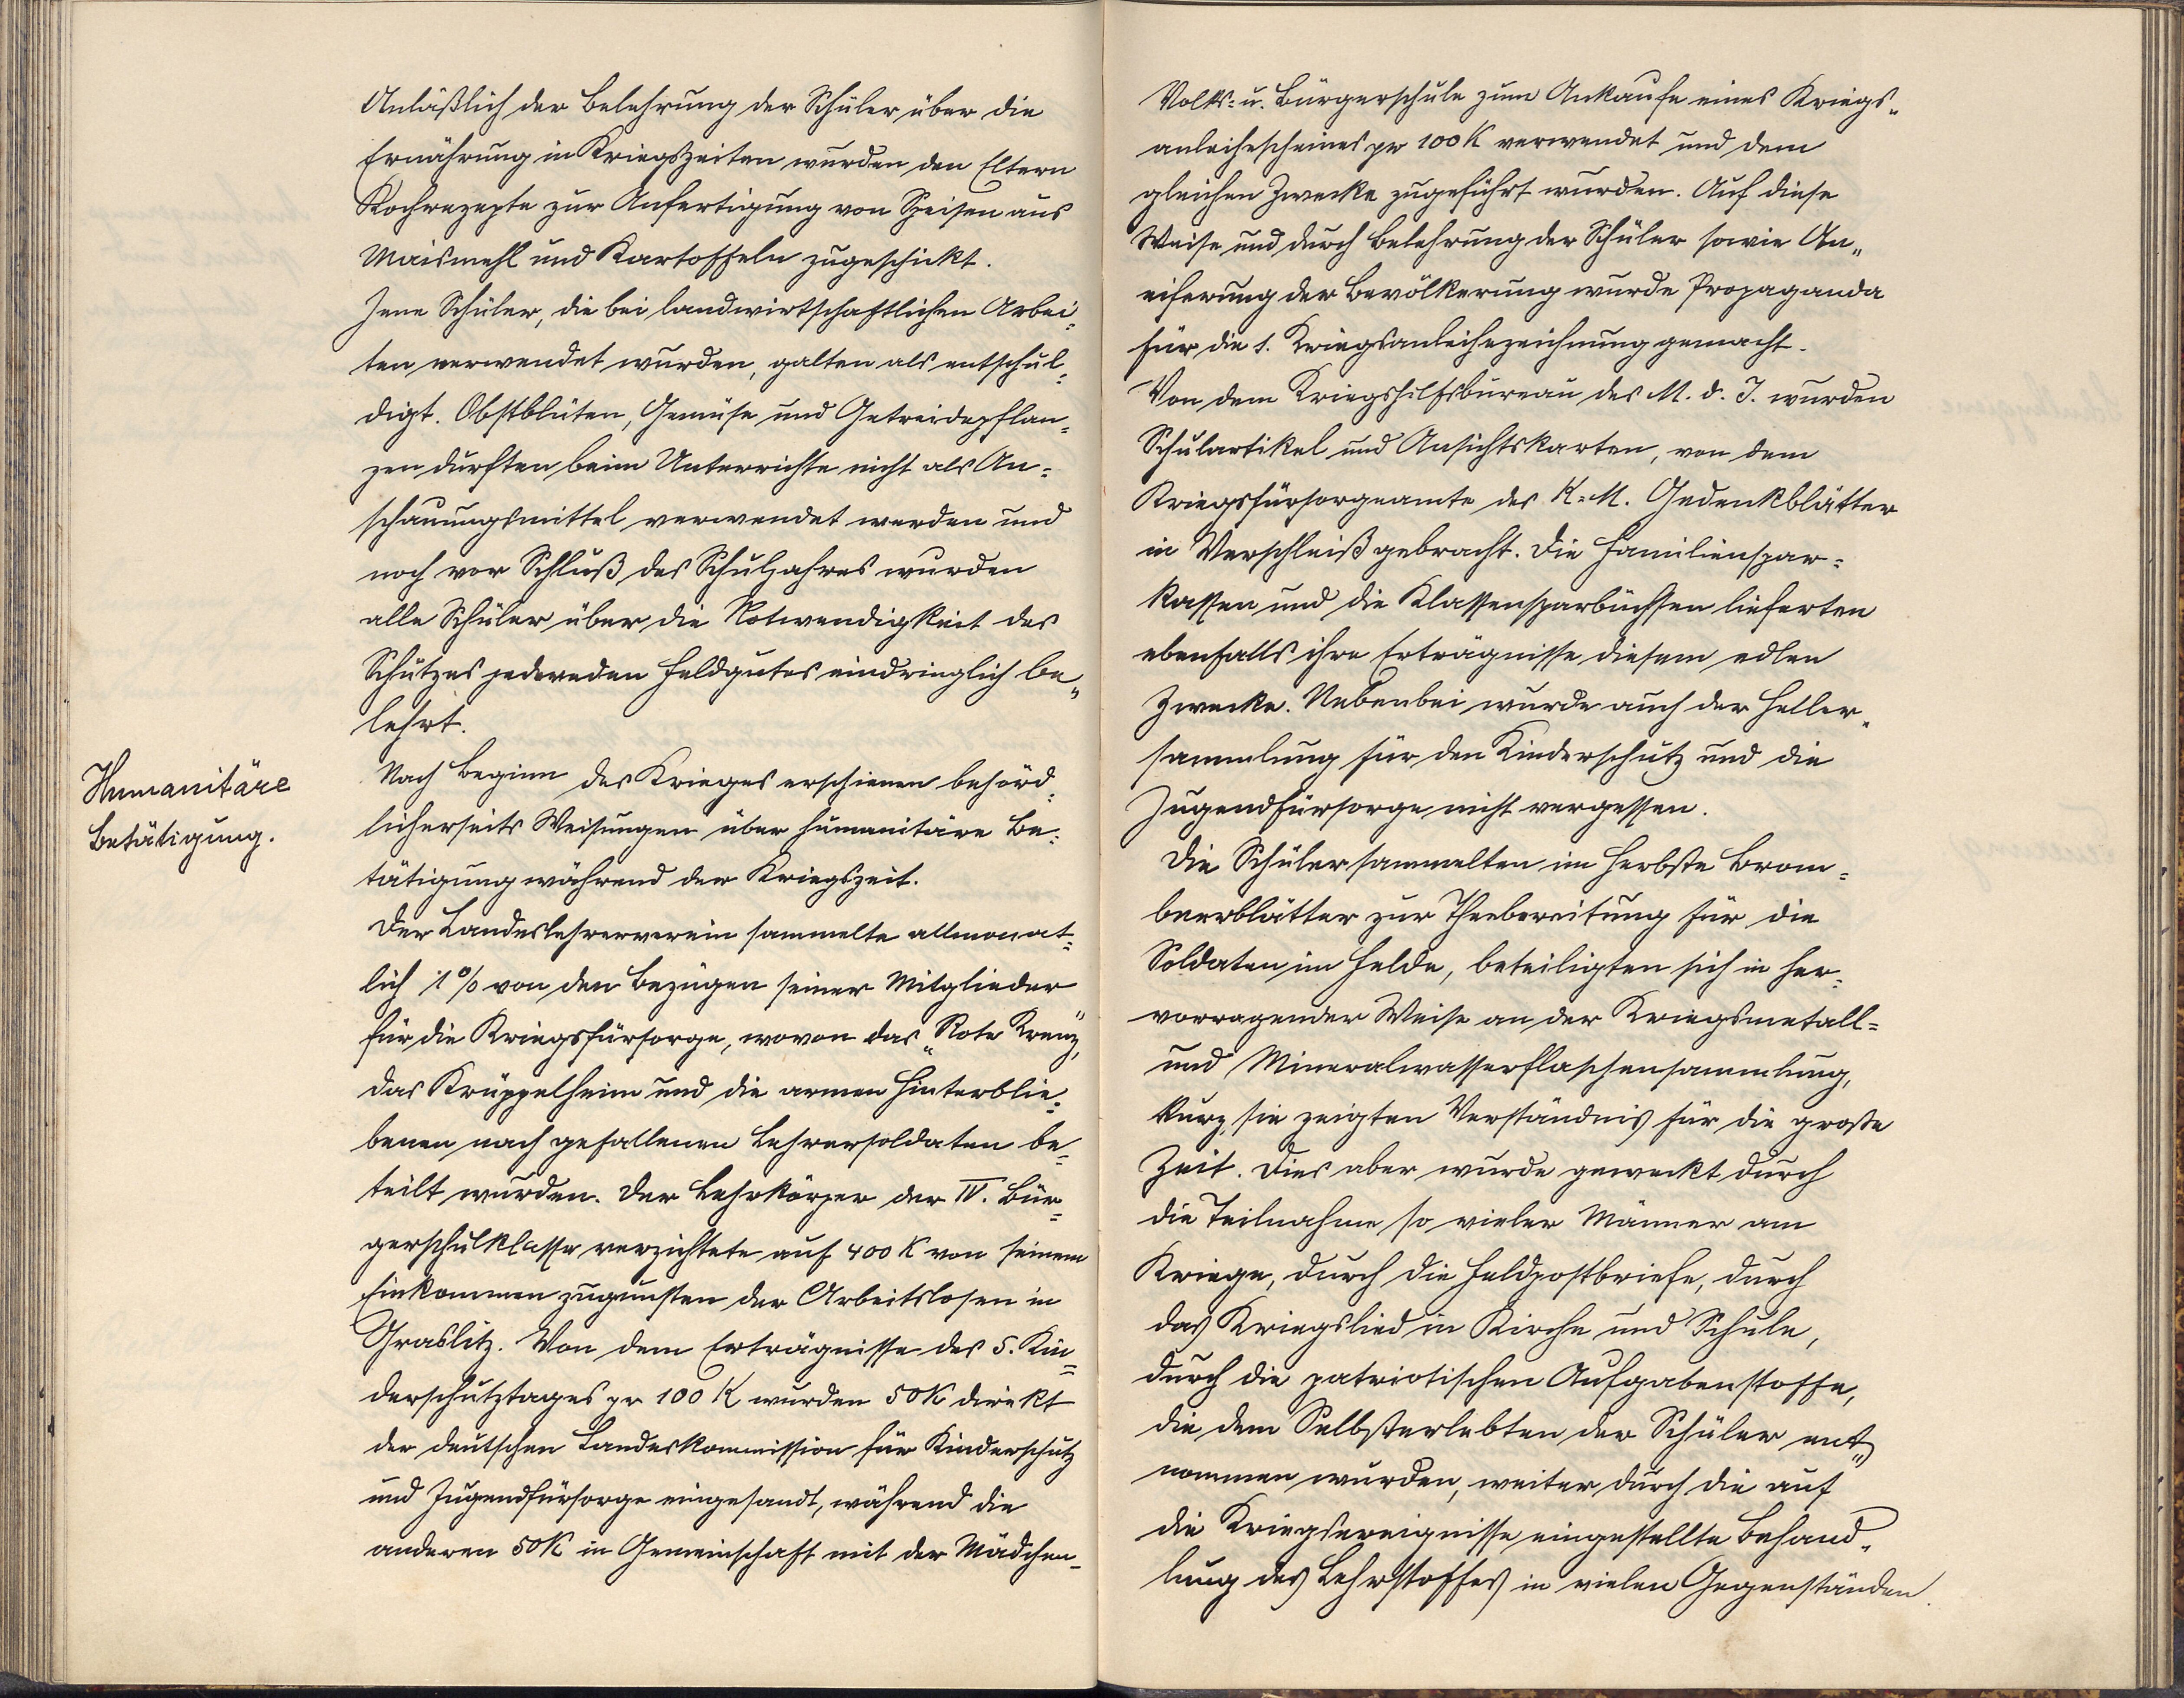 Anläßlich der Belehrung der Schüler über die
Ernährung in Kriegszeiten wurden den Eltern
Kochrezepte zur Anfertigung von Speisen aus
Maismehl und Kartoffeln zugeschickt.
Jene Schüler, die bei landwirtschaftlichen Arbei-
ten verwendet wurden, galten als entschul-
digt. Obstblüten, Gemüse und Getreidepflan-
zen durften beim Unterrichte nicht als An-
schauungsmittel verwendet werden und
noch vor Schluß des Schuljahres wurden
alle Schüler über die Notwendigkeit des
Schutzes jedweden Feldgutes eindringlich be-
lehrt.
Humanitäre
Betätigung.
Nach Beginn des Krieges erschienen behörd-
licherseits Weisungen über humanitäre Be-
tätigung während der Kriegszeit.
Der Landeslehrerverein sammelte allmonat-
lich 1% von den Bezügen seiner Mitglieder
für die Kriegsfürsorge, wovon das „Rote Kreuz",
das Krüppelheim und die armen Hinterblie-
benen nach gefallenen Lehrersoldaten be-
teilt wurden. Der Lehrkörper der IV. Bür-
gerschulklasse verzichtete auf 400 K von seinem
Einkommen zugunsten der Arbeitslosen in
Graslitz. Von dem Erträgnisse des 5. Kin-
derschutztages pr 100 K wurden 50 K direkt
der deutschen Landeskommission für Kinderschutz
und Jugendfürsorge eingesandt, während die
anderen 50 K in Gemeinschaft mit der Mädchen-
Volks- u. Bürgerschule zum Ankaufe eines Kriegs-
anleihescheines pr 100 K verwendet und dem
gleichen Zwecke zugeführt wurden. Auf diese
Weise und durch Belehrung der Schüler sowie An-
eiferung der Bevölkerung wurde Propaganda
für die 1. Kriegsanleihezeichnung gemacht.
Von dem Kriegshilfsbureau des M. d. I. wurden
Schulartikel und Ansichtskarten, von dem
Kriegsfürsorgeamte des K.=M. Gedenkblätter
in Verschleiß gebracht. Die Familienspar-
kassen und die Klassensparbüchsen lieferten
ebenfalls ihre Erträgnisse diesem edlen
Zwecke. Nebenbei wurde auch der Heller-
sammlung für den Kinderschutz und die
Jugendfürsorge nicht vergessen.
Die Schüler sammelten im Herbste Brom-
beerblätter zur Theebereitung für die
Soldaten im Felde, beteiligten sich in her-
vorragender Weise an der Kriegsmetall-
und Mineralwasserflaschensammlung,
kurz, sie zeigten Verständnis für die große
Zeit. Dies aber wurde geweckt durch
die Teilnahme so vieler Männer am
Kriege, durch die Feldpostbriefe, durch
das Kriegslied in Kirche und Schule,
durch die patriotischen Aufgabenstoffe,
die dem Selbsterlebten der Schüler ent-
nommen wurden, weiter durch die auf
die Kriegsereignisse eingestellte Behand-
lung des Lehrstoffes in vielen Gegenständen.